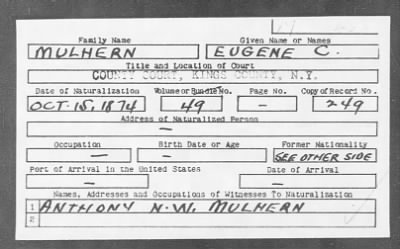 Family Name Given Name or Names
MULHERN EUGENE C.
Title and Location of Court
COUNTY COURT, KINGS COUNTY, N.Y.
Date of Naturalization Volume or Bundle No. Page No. Copy of Record No.
OCT. 15, 1874 49 — 249
Address of Naturalized Person
—
Occupation Birth Date or Age Former Nationality
— — SEE OTHER SIDE
Port of Arrival in the United States Date of Arrival
— —
Names, Addresses and Occupations of Witnesses To Naturalization
1 ANTHONY N.W. MULHERN
2